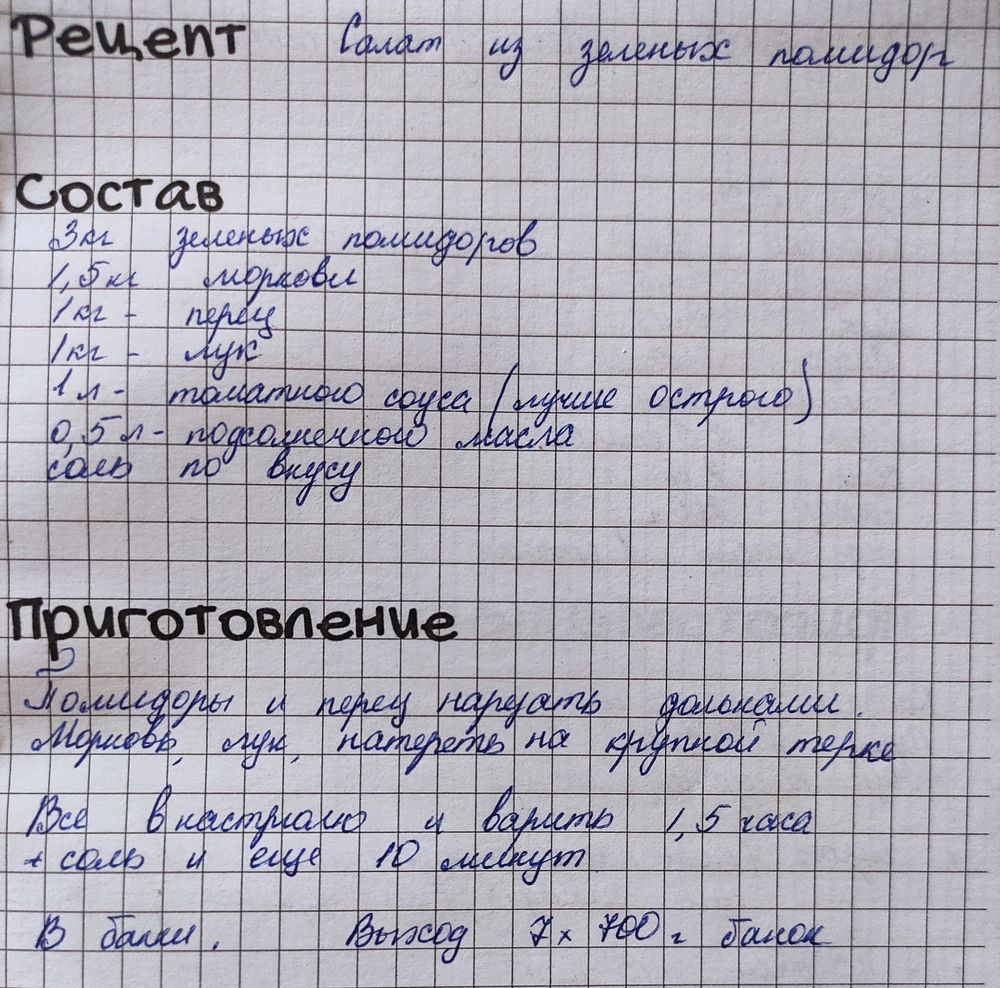 Рецепт Салат из зеленых помидор
Состав
3кг зеленых помидоров
1,5кг моркови
1кг - перец
1кг - лук
1 л - томатного соуса (лучше острого)
0,5 л - подсолнечного масла
соль по вкусу
Приготовление
Помидоры и перец нарезать дольками.
Морковь, лук, натереть на крупной терке
Все в кастрюлю и варить 1,5 часа
+ соль и еще 10 минут
В банки. Выход 7 x 700 г банок